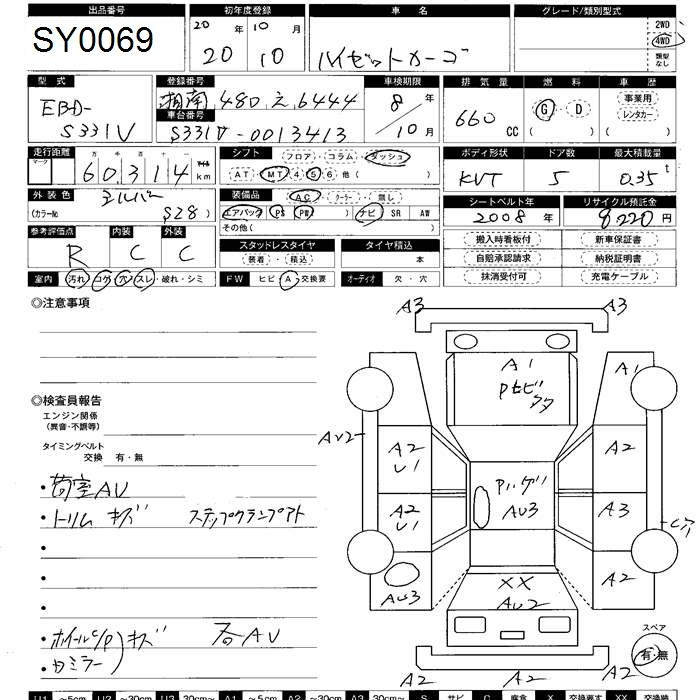 出品番号 初年度登録 車名 グレード/類別型式
SY0069 20年 10月 2WD
20 10 ハイゼットカーゴ 4WD
類型なし
型式 登録番号 車検期限 排気量 燃料 車歴
EBD- 湘南 480 え 6444 8年 660 CC G・D 事業用
S331V 車台番号 レンタカー
S331V-0013413 10月 ( ) ( )
走行距離 シフト フロア・コラム・ダッシュ ボディ形状 ドア数 最大積載量
マーク 十万 千 百 十 一 マイル
60,314 km AT・MT 4 5 6 他( ) KVT 5 0.35 t
外装色 装備品 AC・クーラー・無し シートベルト年 リサイクル預託金
シルバー エアバック PS PW ナビ SR AW 2008年 8220円
(カラーNo S28) その他( )
参考評価点 内装 外装 スタッドレスタイヤ タイヤ積込 搬入時看板付 新車保証書
R C C 装着・積込 本 自賠承認請求 納税証明書
室内 汚れ・コゲ・穴・スレ・破れ・シミ FW ヒビ・A・交換要 オーディオ 欠・穴 抹消受付可 充電ケーブル
◎注意事項
A3 A3
A1
A1
◎検査員報告
エンジン関係
(異音・不調等)
タイミングベルト
交換 有・無
AU2 A2 U1 A2
・荷室AU
・トリム キズ
A2 U1 AU3 A3
AU3 XX AU2 A2
・ホイールc/p キズ
ミラー
スペア
有・無
A2 A2 A2
U1 ~5cm U2 ~30cm U3 30cm~ A1 ~5cm A2 ~30cm A3 30cm~ S サビ C 腐食 X 交換要す XX 交換跡